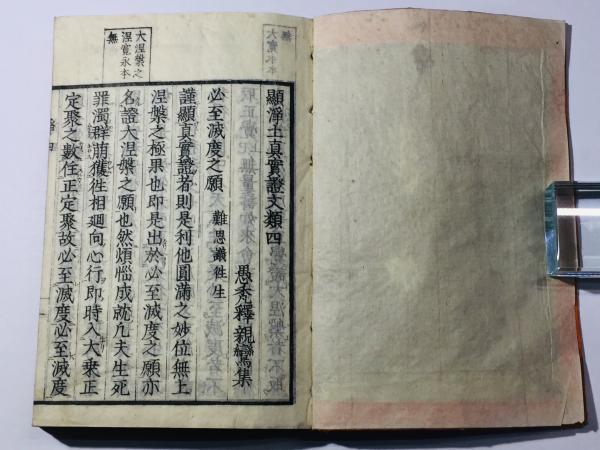 顯淨土真實證文類四
愚禿釋親鸞集
必至滅度之願
難思議往生
謹顯真實證者則是利他圓滿之妙位無上
涅槃之極果也即是出於必至滅度之願亦
名證大涅槃之願也然煩惱成就凢夫生死
罪濁群萌獲徃相廻向心行即時入大乗正
定聚之數住正定聚故必至滅度必至滅度
大涅槃之
涅寛永本
無